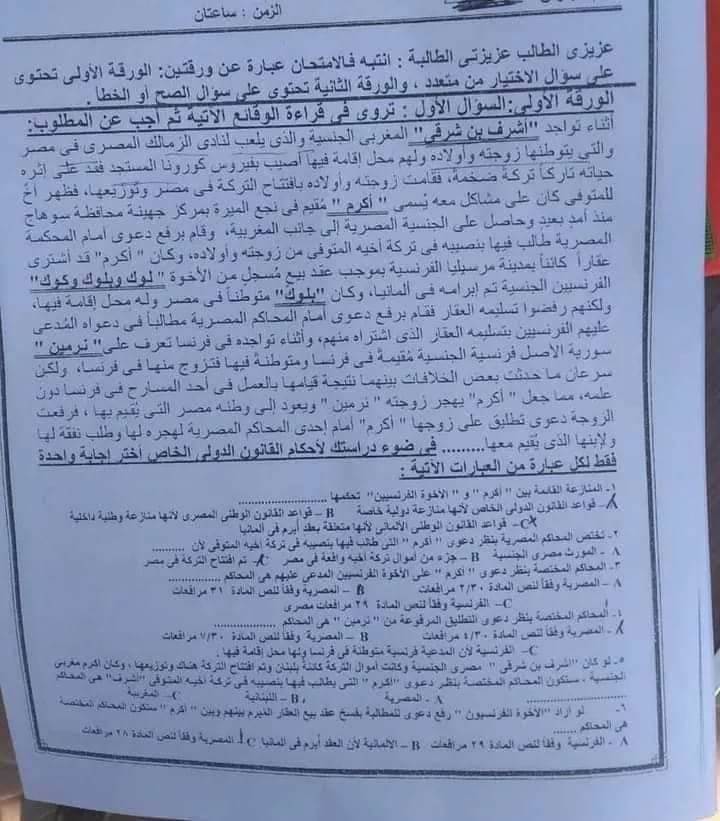 الزمن : ساعتان
عزيزى الطالب عزيزتى الطالبة : انتبه فالامتحان عبارة عن ورقتين: الورقة الأولى تحتوى
على سؤال الاختيار من متعدد ، والورقة الثانية تحتوى على سؤال الصح أو الخطأ .
الورقة الأولى: السؤال الأول : تروى فى قراءة الوقائع الآتية ثم أجب عن المطلوب:
أثناء تواجد "أشرف بن شرقى" المغربى الجنسية والذى يلعب لنادى الزمالك المصرى فى مصر
والتى يتوطنها زوجته وأولاده ولهم محل إقامة فيها أصيب بفيروس كورونا المستجد فقد على إثره
حياته تاركاً تركة ضخمة، فقامت زوجته وأولاده بافتتاح التركة فى مصر وتوزيعها، فظهر أخ
للمتوفى كان على مشاكل معه يُسمى " أكرم " مُقيم فى نجع الميرة بمركز جهينة محافظة سوهاج
منذ أمد بعيد وحاصل على الجنسية المصرية إلى جانب المغربية، وقام برفع دعوى أمام المحكمة
المصرية طالب فيها بنصيبه فى تركة أخيه المتوفى من زوجته وأولاده، وكان "أكرم" قد أشترى
عقاراً كائناً بمدينة مرسيليا الفرنسية بموجب عقد بيع مُسجل من الأخوة " لوك وبلوك وكوك"
الفرنسيين الجنسية تم إبرامه فى ألمانيا، وكان "بلوك" متوطناً فى مصر وله محل إقامة فيها،
ولكنهم رفضوا تسليمه العقار فقام برفع دعوى أمام المحاكم المصرية مطالباً فى دعواه المُدعى
عليهم الفرنسيين بتسليمه العقار الذى اشتراه منهم، وأثناء تواجده فى فرنسا تعرف على" نرمين "
سورية الأصل فرنسية الجنسية مُقيمة فى فرنسا ومتوطنة فيها فتزوج منها فى فرنسا، ولكن
سرعان ما حدثت بعض الخلافات بينهما نتيجة قيامها بالعمل فى أحد المسارح فى فرنسا دون
علمه، مما جعل " أكرم" يهجر زوجته " نرمين " ويعود إلى وطنه مصر التى يُقيم بها ، فرفعت
الزوجة دعوى تطليق على زوجها " أكرم" أمام إحدى المحاكم المصرية لهجره لها وطلب نفقة لها
ولإبنها الذى يُقيم معها......... فى ضوء دراستك لأحكام القانون الدولى الخاص أختر إجابة واحدة
فقط لكل عبارة من العبارات الآتية :
١- المنازعة القائمة بين " أكرم " و " الأخوة الفرنسيين" تحكمها ....................
A- قواعد القانون الدولى الخاص لأنها منازعة دولية خاصة B – قواعد القانون الوطنى المصرى لأنها منازعة وطنية داخلية
C- قواعد القانون الوطنى الألمانى لأنها متعلقة بعقد أبرم فى ألمانيا
٢- تختص المحاكم المصرية بنظر دعوى " أكرم " التى طالب فيها بنصيبه فى تركة أخيه المتوفى لأن ..........
A - المورث مصرى الجنسية B – جزء من أموال تركة أخيه واقعة فى مصر C- تم افتتاح التركة فى مصر
٣- المحاكم المختصة بنظر دعوى " أكرم " على الأخوة الفرنسيين المدعى عليهم هى المحاكم ..............
A – المصرية وفقاً لنص المادة ٢/٣٠ مرافعات B – المصرية وفقاً لنص المادة ٣١ مرافعات
C– الفرنسية وفقاً لنص المادة ٢٩ مرافعات مصرى
٤- المحاكم المختصة بنظر دعوى التطليق المرفوعة من " نرمين " هى المحاكم ..............
A - المصرية وفقاً لنص المادة ٤/٣٠ مرافعات B – المصرية وفقاً لنص المادة ٧/٣٠ مرافعات
C – الفرنسية لأن المدعية فرنسية متوطنة فى فرنسا ولها محل إقامة فيها .
٥- لو كان "أشرف بن شرقى " مصرى الجنسية وكانت أموال التركة كائنة بلبنان وتم افتتاح التركة هناك وتوزيعها ، وكان أكرم مغربى
الجنسية ، ستكون المحاكم المختصة بنظر دعوى "أكرم" التى يطالب فيها بنصيبه فى تركة أخيه المتوفى "أشرف" هى المحاكم
.................... A - المصرية B – اللبنانية C– المغربية
٦- لو أراد "الأخوة الفرنسيون " رفع دعوى للمطالبة بفسخ عقد بيع العقار المُبرم بينهم وبين " أكرم " ستكون المحاكم المختصة
هى المحاكم .......
A - الفرنسية وفقاً لنص المادة ٢٩ مرافعات B – الألمانية لأن العقد أبرم فى ألمانيا C المصرية وفقاً لنص المادة ٢٨ مرافعات